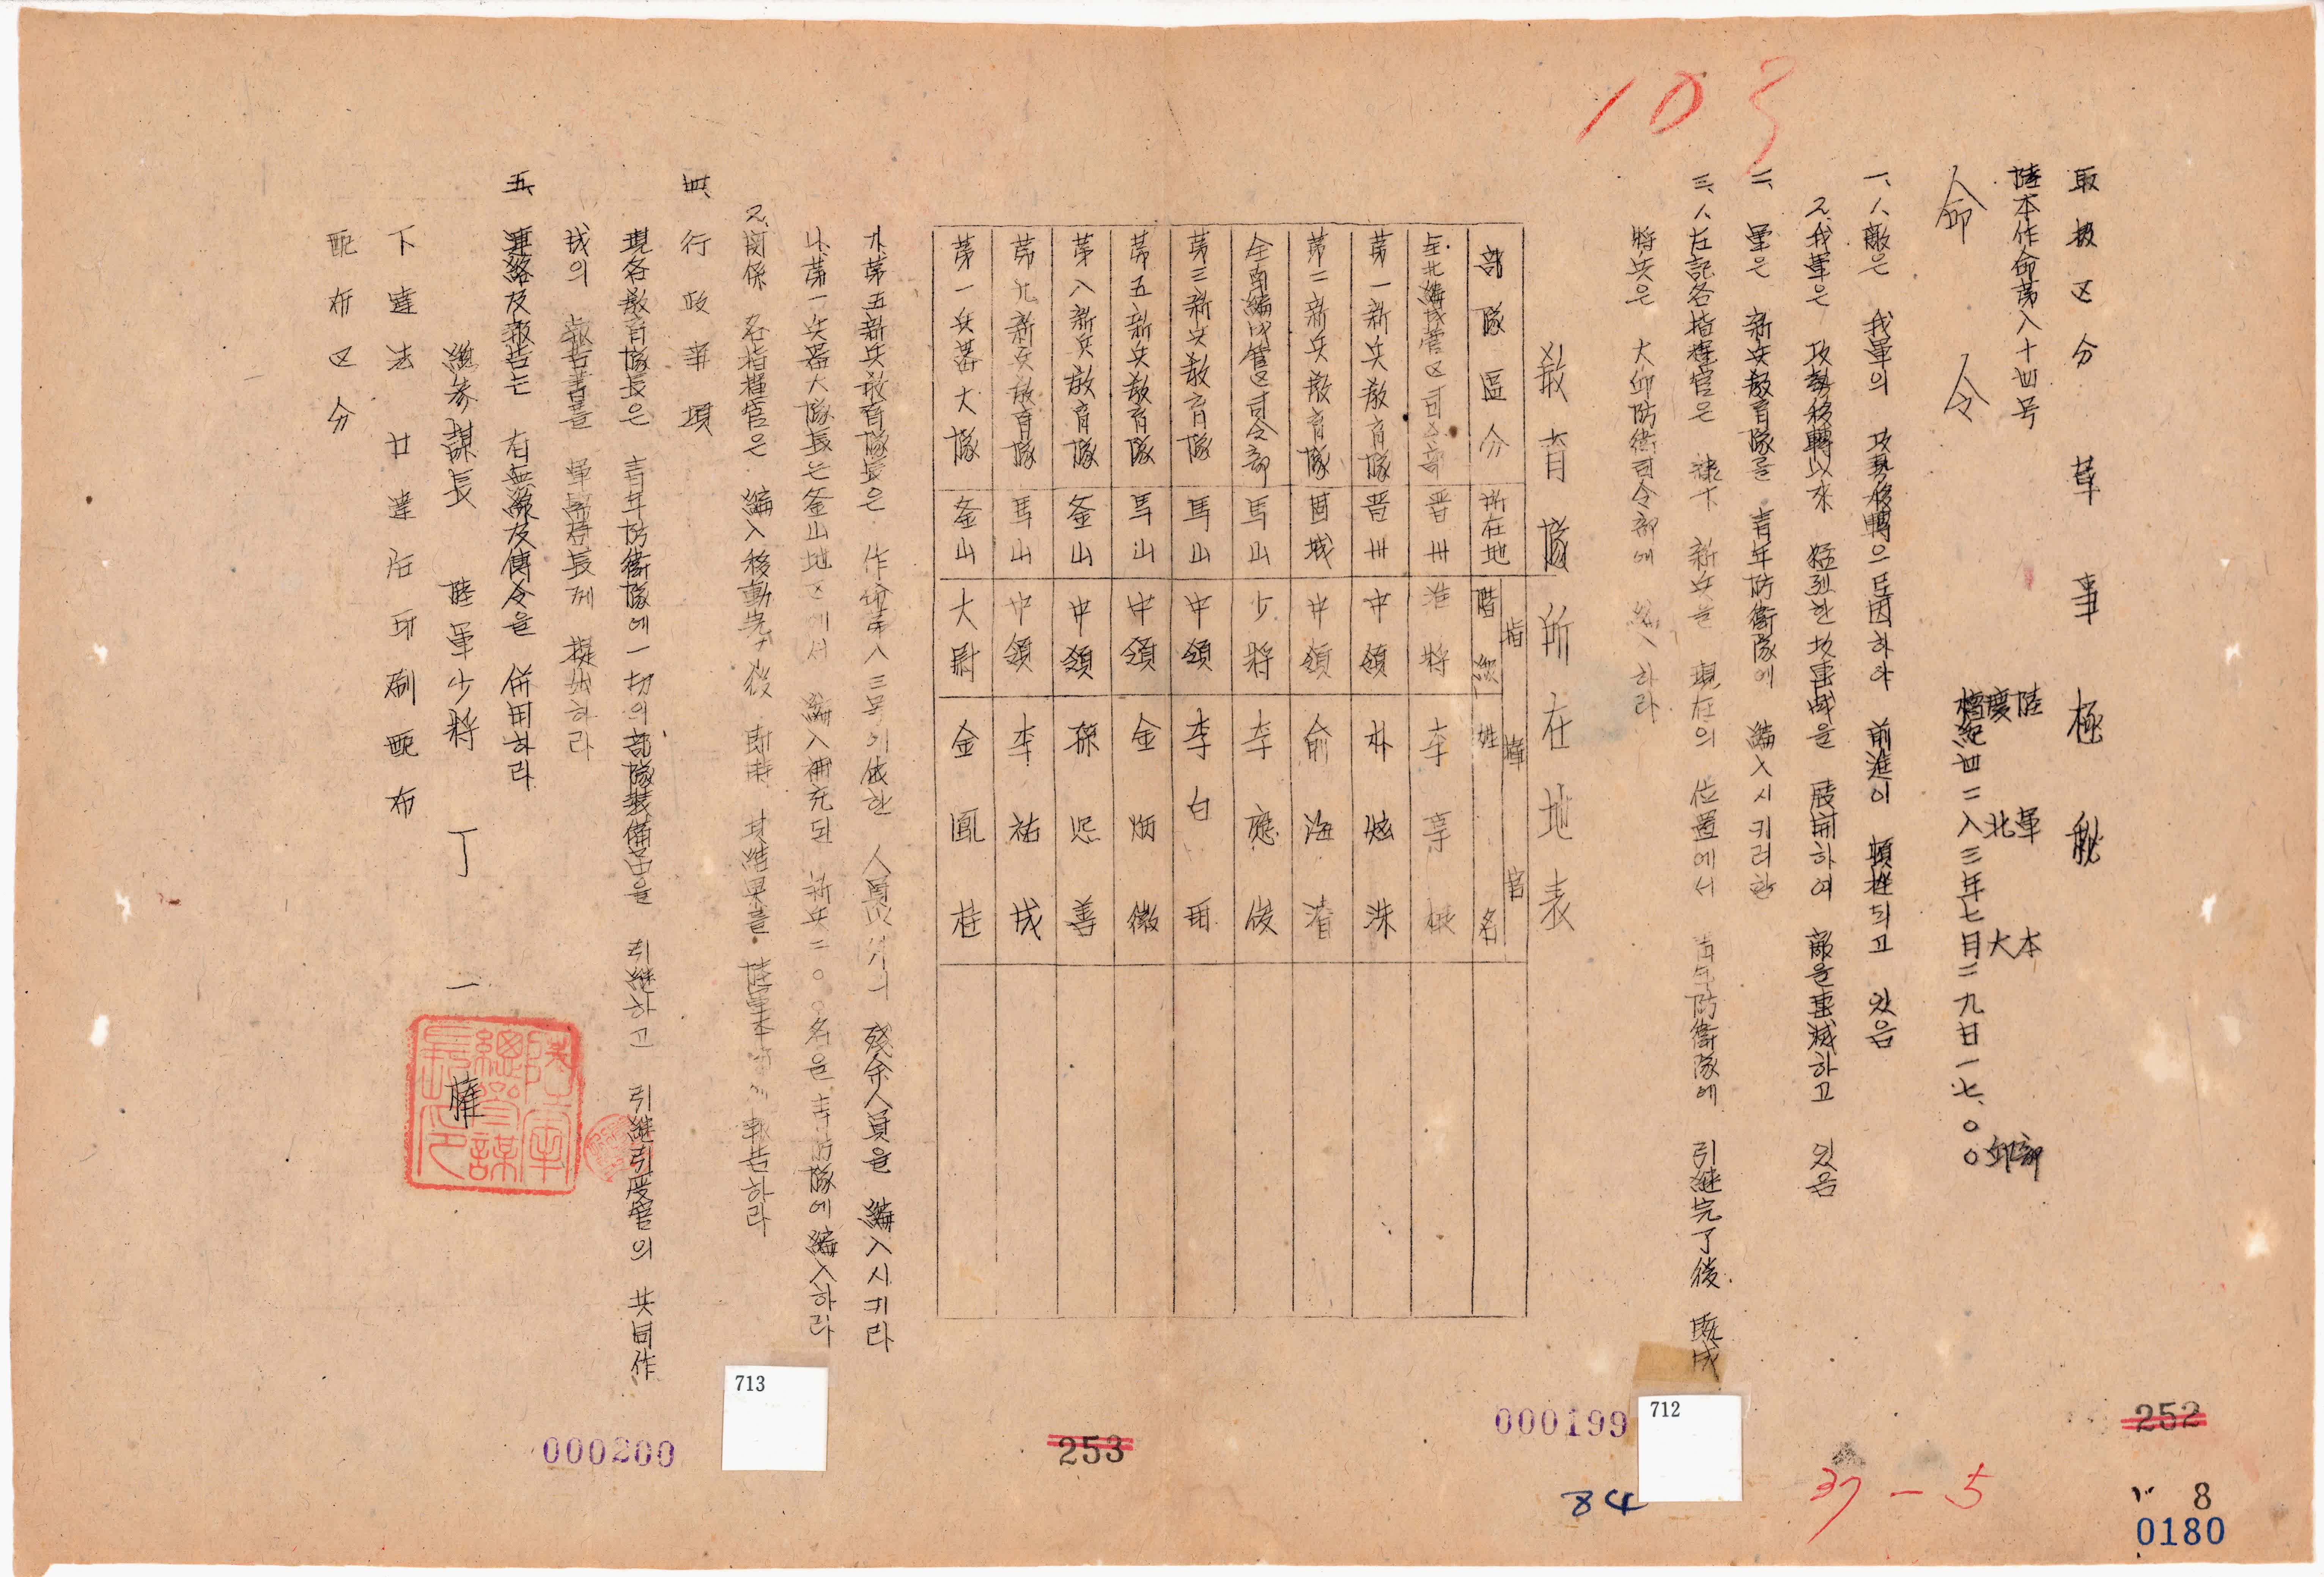 取扱区分 軍事極秘
陸本作命第八十四号
陸軍本部
慶北大邱
檀紀四二八三年七月二九日一七、〇〇
命令
一、1、敵은 我軍의 攻勢移轉으로因하야 前進이 頓挫되고 있음
2、我軍은 攻勢移轉以来 猛烈한 攻擊戰을 展開하여 敵을擊滅하고 있음
二、軍은 新兵敎育隊를 靑年防衛隊에 編入시키려함
三、1、左記各指揮官은 隷下 新兵을 現在의 位置에서 靑年防衛隊에 引継完了後 既成
將兵은 大邱防衛司令部에 編入하라
敎育隊所在地表
部隊區分 所在地 指揮官 階級 姓名
全北編成管区司令部 晋州 准將 李亨根
第一新兵敎育隊 晋州 中領 朴炫洙
第二新兵敎育隊 固城 中領 俞海濬
全南編成管区司令部 馬山 少將 李應俊
第三新兵敎育隊 馬山 中領 李白
第五新兵敎育隊 馬山 中領 金炳徽
第八新兵敎育隊 釜山 中領 孫善
第九新兵敎育隊 馬山 中領 李祐成
第一兵器大隊 釜山 大尉 金鳳桂
가、第五新兵敎育隊長은 作命第八三号에依한 人員以外의 殘余人員을 編入시키라
나、第一兵器大隊長은 釜山地区에서 編入補充된 新兵二〇〇名을 靑防隊에 編入하라
2、関係 各指揮官은 編入移動完了後 即時 其結果를 陸軍本部에 報告하라
四、行政事項
現各敎育隊長은 靑年防衛隊에 一切의 部隊裝備品을 引継하고 引継引受官의 共同作
成의 報告書를 軍需局長께 提出하라
五、連絡及報告는 有無線及傳令을 併用하라
總参謀長 陸軍少將 丁一權
陸軍總參謀長印
下達法 日達后印刷配布
配布区分
252
253
000199
000200
712
713
84
37-5
8
0180